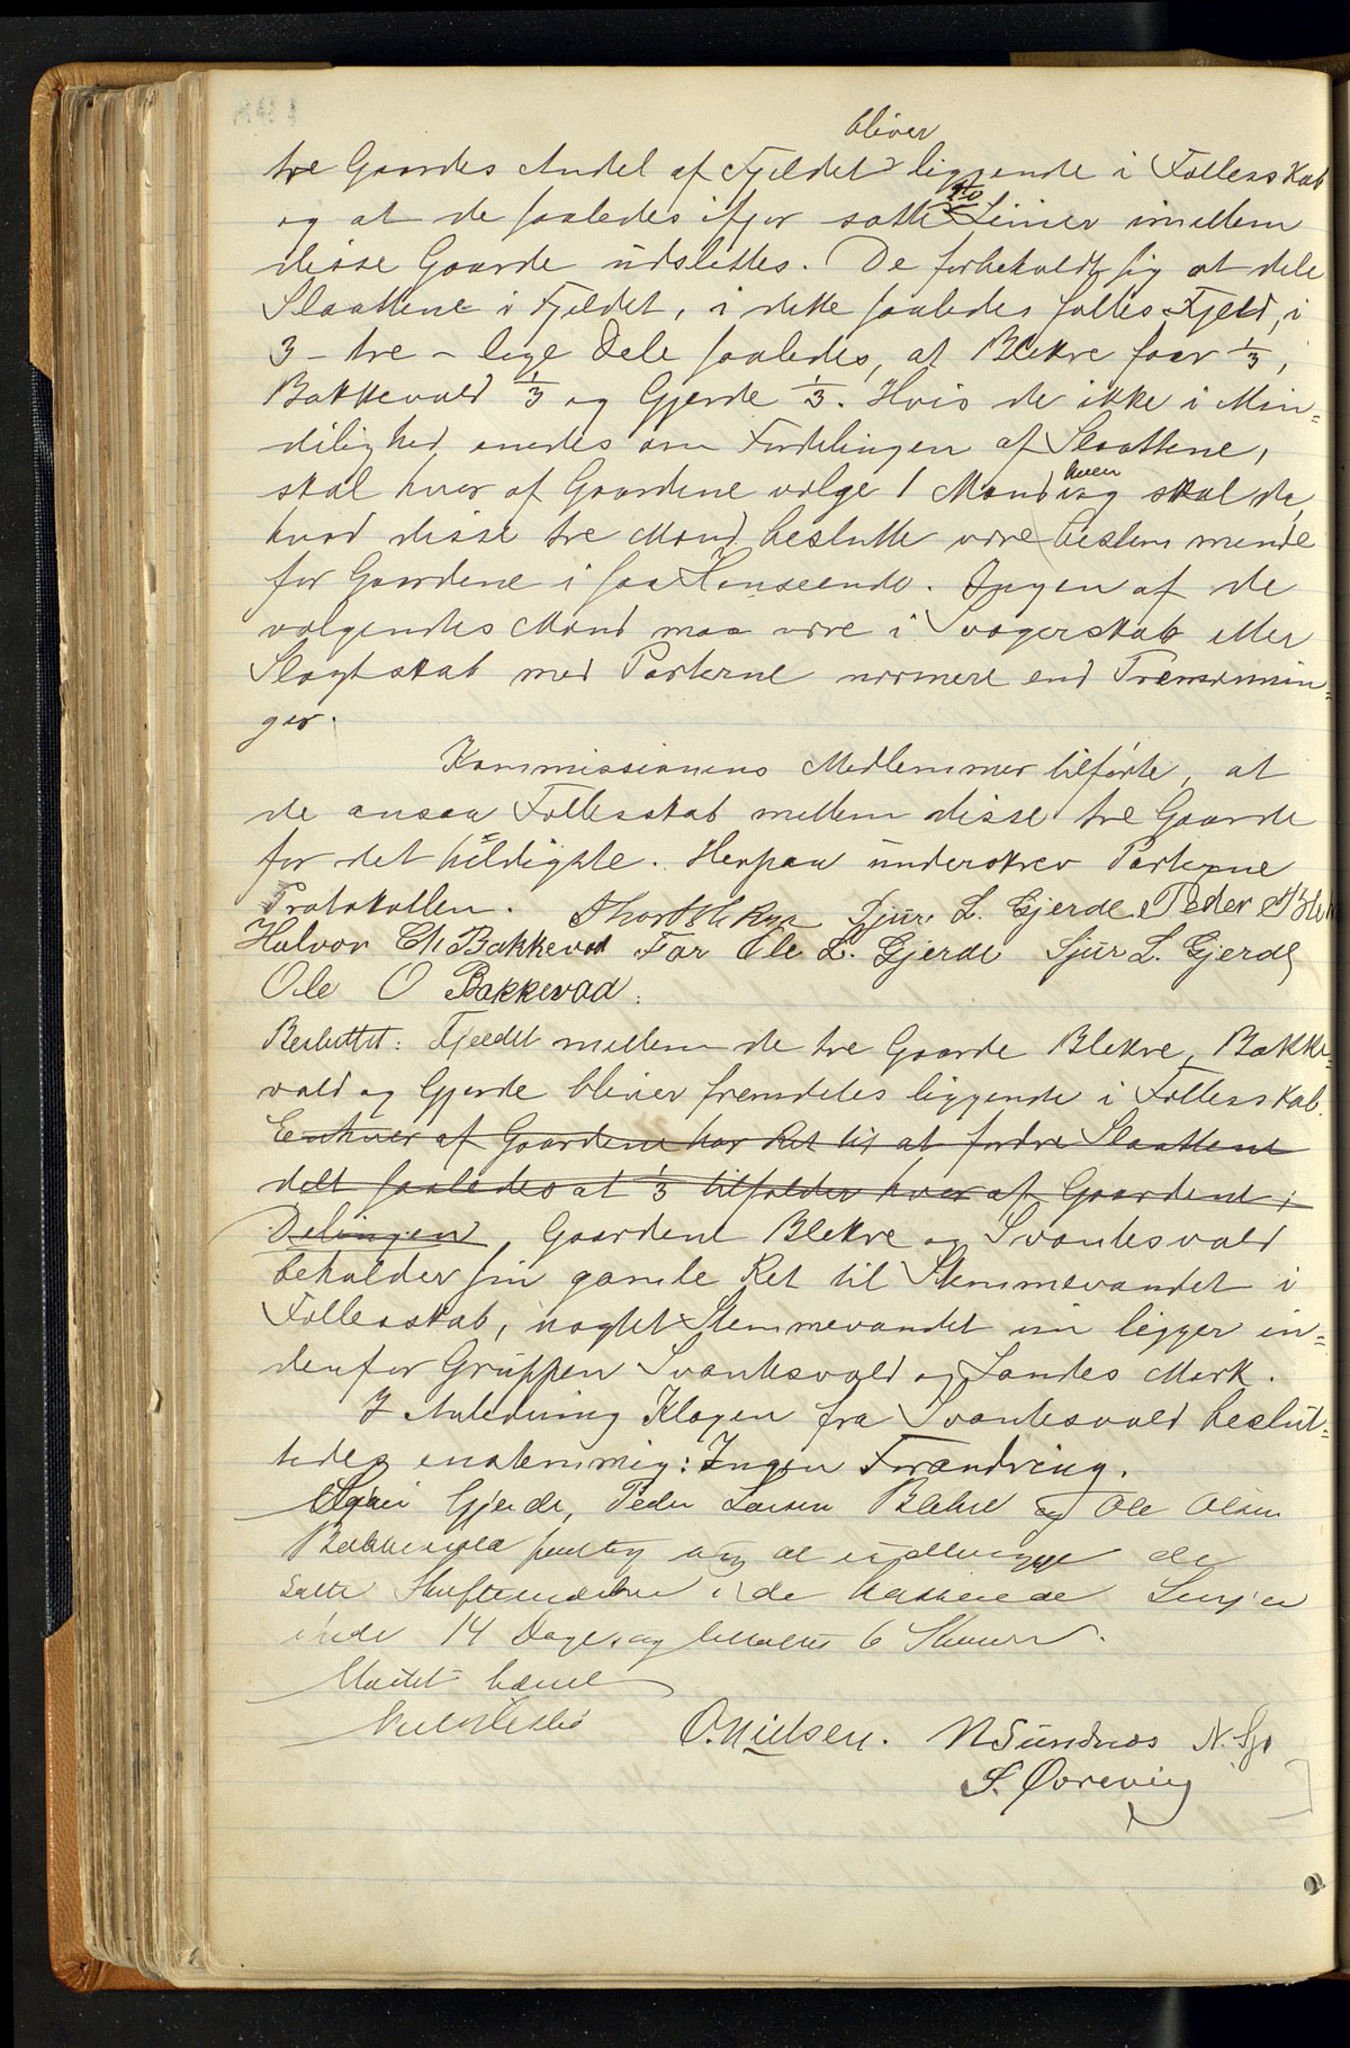 bliver
tre Gaardes Andel af Fjeldet liggende i Fællesskab
og at de saaledes ifjor satte Linier imellem
disse Gaarde udslettes. De forbeholdt sig at dele
Slaattene i Fjeldet, i dette saaledes fælles Fjeld, i
3 - tre - lige Dele saaledes, at Blekre faar 1/3,
Bakkevold 1/3 og Gjerde 1/3. Hvis de ikke i Min=
delighed enedes om Fordelingen af Slaattene,
skal hver af Gaardene vælge 1 Mand og skal da
hvad disse tre Mænd beslutte være bestemmende
for Gaardene i saa Henseende. Ingen af de
vælgendes Mænd maa være i Svogerskab eller
Slægtskab med Parterne nærmere end Tremænnin=
ger.
Kommissionens Medlemmer tilførte, at
de ansaa Fællesskab mellem disse tre Gaarde
for det heldigste. Herpaa underskrev Parterne
Protokollen. Sjur L. Gjerde Peder
Halvor Ch Bakkevod For Ole L. Gjerde Sjur L. Gjerde
Ole O Bakkevad.
Besluttet: Fjeldet mellem de tre Gaarde Blekre, Bakke=
vold og Gjerde bliver fremdeles liggende i Fællesskab.
Enhver af Gaardene har Ret til at fordre Slaattene
delt saaledes at 1/3 tilfalder hver af Gaardene i
Delingen. Gaardene Blekre og Svantesvold
beholder sin gamle Ret til Stemmevandet i
Fællesskab, uagtet Stemmevandet nu ligger in=
denfor Gruppen Svantesvold og Sandes Mark.
I Anledning Klagen fra Svantesvold beslut=
tedes enstemmig: Ingen Forandring.
Gjerde, Peder Larsen Blekre og Ole Olsen
Bakkevold at de
satte i de
inde 14 Dage, og 6
Mødet hævet
O. Nielsen. N Sundnæs N.
S. Øvrevig